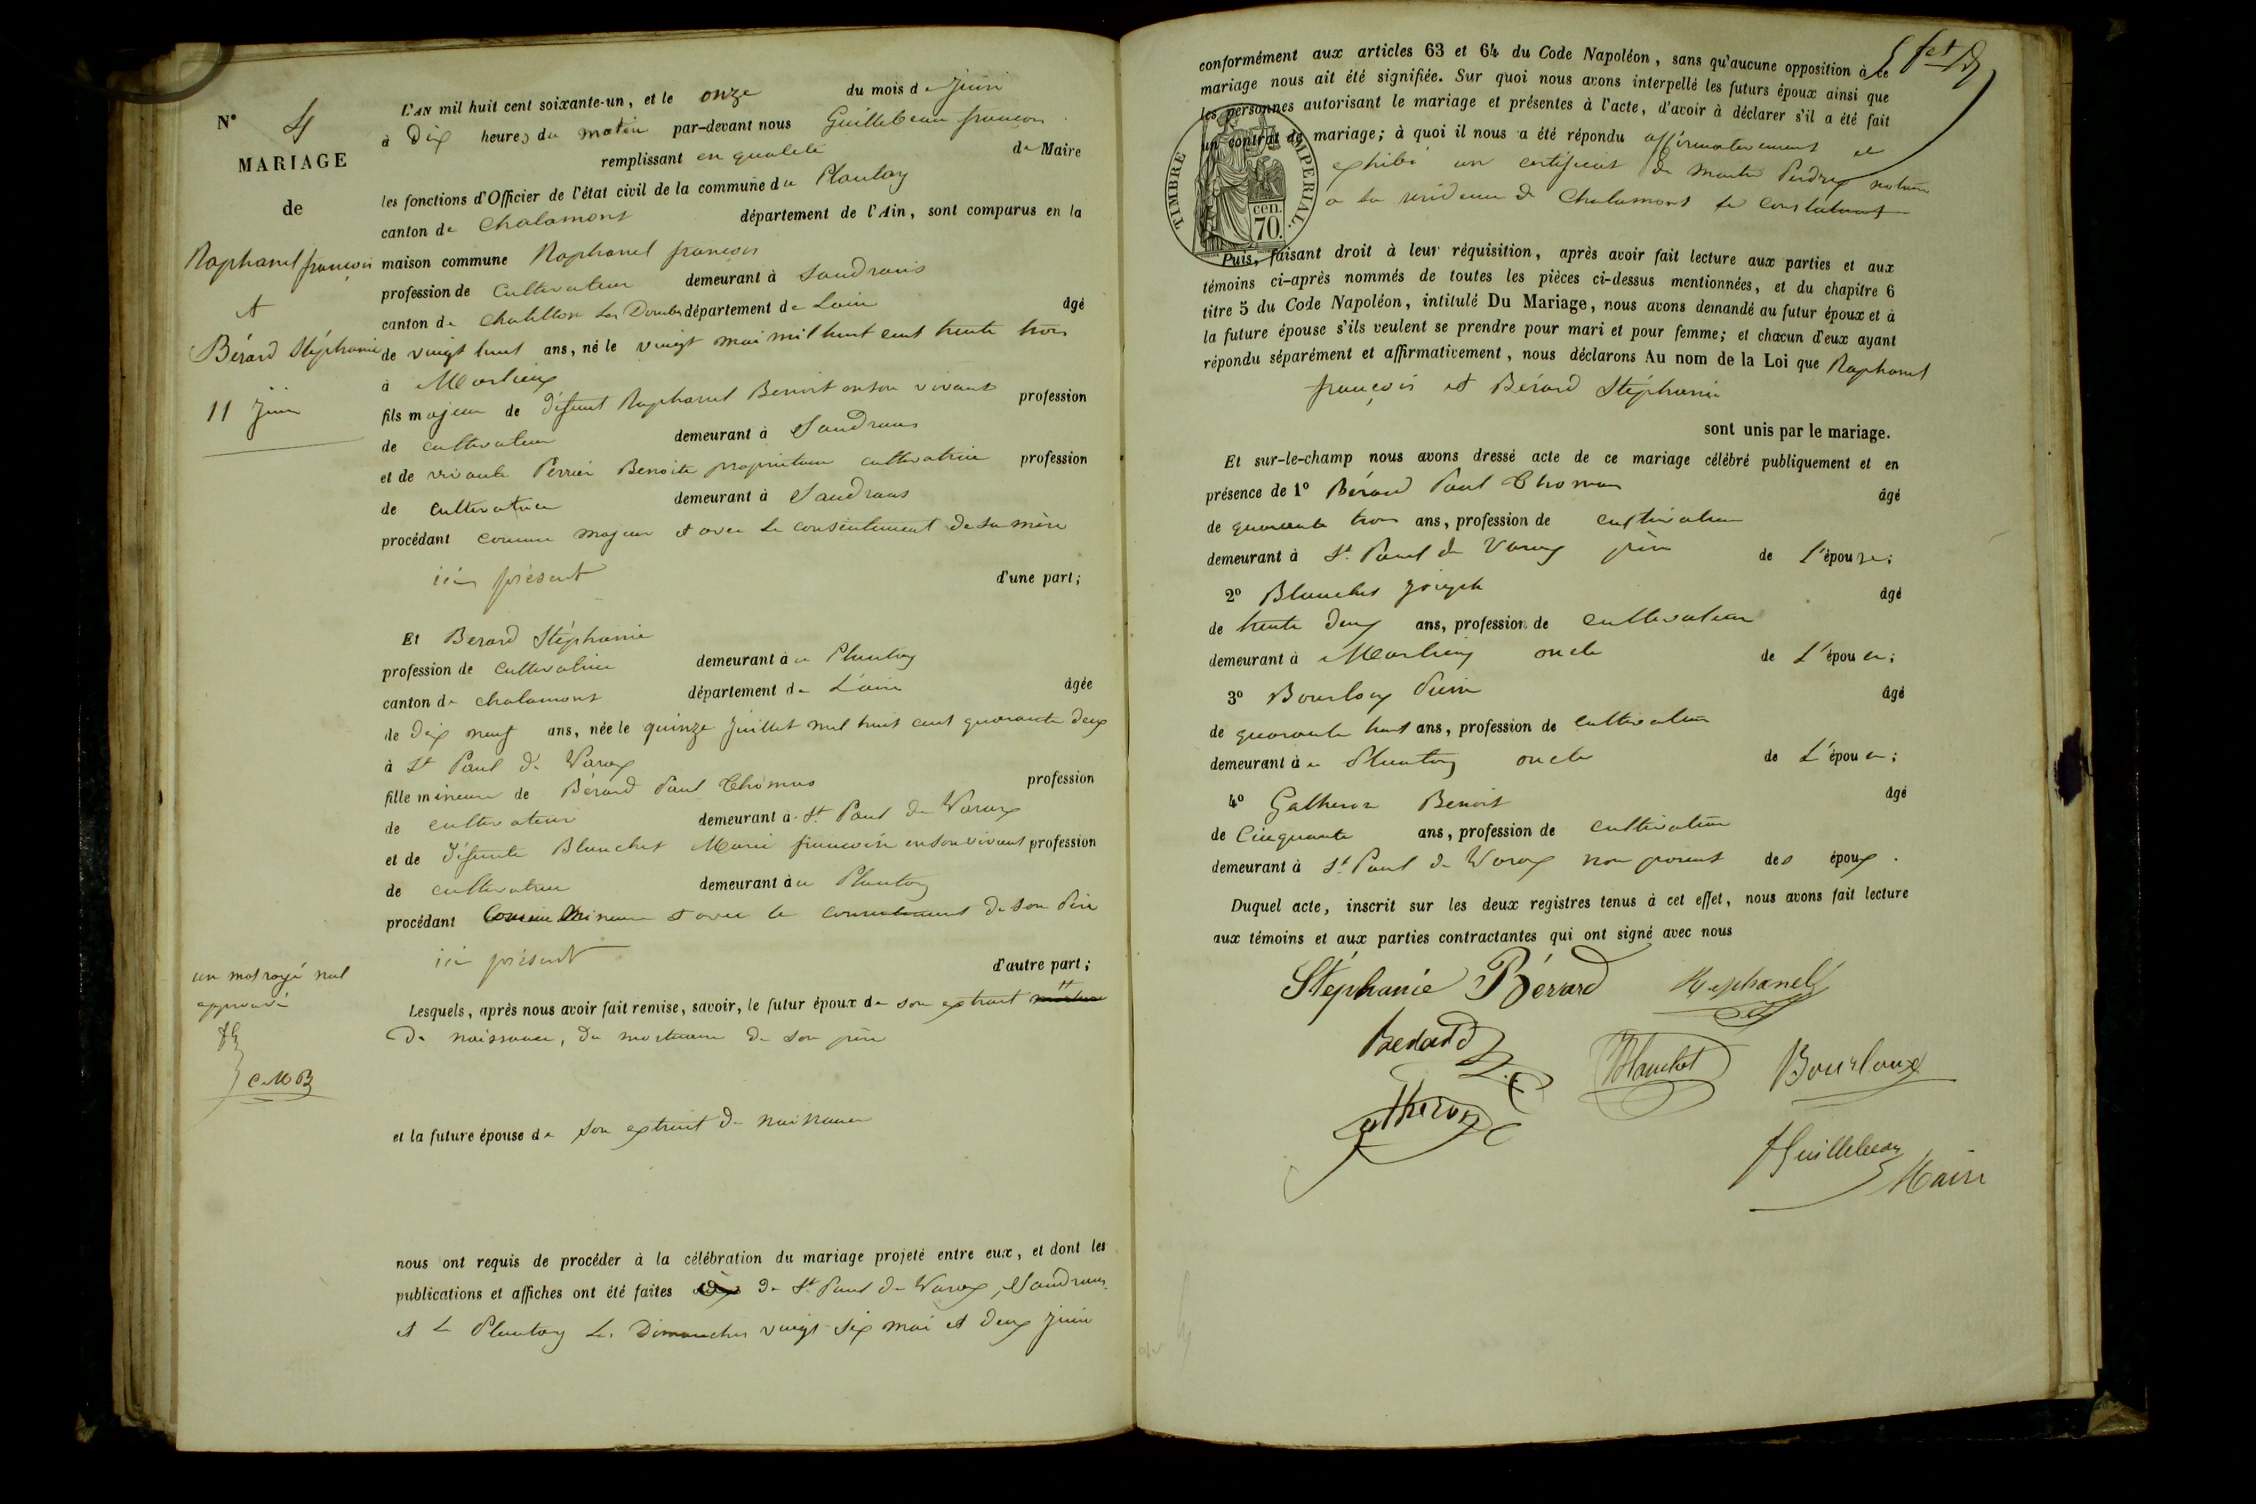 N° 4
MARIAGE
de
Raphanel françois
et
Bérard Stéphanie
11 Juin
un mot rayé nul
approuvé
L'AN mil huit cent soixante-un, et le onze du mois de Juin
à Dix heures du matin par-devant nous Guillebeau françois
remplissant en qualité de Maire
les fonctions d'Officier de l'état civil de la commune du Plantay
canton de Chalamont département de l'Ain, sont comparus en la
maison commune Raphanel françois
profession de Cultivateur demeurant à Sandrans
canton de Chatillon Les Dombes département de Lain âgé
de vingt huit ans, né le vingt mai mil huit cent trente trois
à Marlieux
fils majeur de défunt Raphanel Benoit en son vivant profession
de cultivateur demeurant à Sandrans
et de vivante Perrier Benoite propriétaire cultivatrice profession
de Cultivatrice demeurant à Sandrans
procédant comme majeur et avec le consentement de sa mère
ici présent d'une part;
Et Berard Stéphanie
profession de cultivatrice demeurant à u Plantay
canton de chalamont département de L'ain âgée
de dix neuf ans, née le quinze Juillet mil huit cent quarante deux
à St Paul de Varax
fille mineure de Bérard Paul Thomas profession
de cultivateur demeurant à St Paul de Varax
et de défunte Blanchet Marie françoise en son vivant profession
de cultivatrice demeurant à u Plantay
procédant Comme Mineure et avec le consentement de son Père
ici présent d'autre part;
Lesquels, après nous avoir fait remise, savoir, le futur époux de son extrait
de naissance, du mortuaire de son père
et la future épouse de son extrait de naissance
nous ont requis de procéder à la célébration du mariage projeté entre eux, et dont les
publications et affiches ont été faites de St Paul de Varax, Sandrans
et Le Plantay Les Dimanches vingt six mai et deux Juin
conformément aux articles 63 et 64 du Code Napoléon, sans qu'aucune opposition à ce
mariage nous ait été signifiée. Sur quoi nous avons interpellé les futurs époux ainsi que
les personnes autorisant le mariage et présentes à l'acte, d'avoir à déclarer s'il a été fait
un contrat de mariage; à quoi il nous a été répondu affirmativement et
exhibé un certificat de maitre Perdrix notaire
a la résidence de Chalamont le constatant
TIMBRE IMPERIAL.
70. cen.
Puis, faisant droit à leur réquisition, après avoir fait lecture aux parties et aux
témoins ci-après nommés de toutes les pièces ci-dessus mentionnées, et du chapitre 6
titre 5 du Code Napoléon, intitulé Du Mariage, nous avons demandé au futur époux et à
la future épouse s'ils veulent se prendre pour mari et pour femme; et chacun d'eux ayant
répondu séparément et affirmativement, nous déclarons Au nom de la Loi que Raphanel
françois et Bérard Stéphanie
sont unis par le mariage.
Et sur-le-champ nous avons dressé acte de ce mariage célébré publiquement et en
présence de 1° Bérard Paul Thomas âgé
de quarante trois ans, profession de cultivateur
demeurant à St Paul de Varax père de l'épouse;
2° Blanchet Joseph âgé
de trente deux ans, profession de cultivateur
demeurant à Marlieux oncle de L'épouse;
3° Bourloux Pierre âgé
de quarante huit ans, profession de cultivateur
demeurant à u Plantay oncle de L'épouse;
4° Gatheron Benoit âgé
de Cinquante ans, profession de cultivateur
demeurant à St Paul de Varax non parent des époux.
Duquel acte, inscrit sur les deux registres tenus à cet effet, nous avons fait lecture
aux témoins et aux parties contractantes qui ont signé avec nous
Stéphanie Bérard Raphanel
Berard Blanchet Bourloux
gatheron
fGuillebeau
Maire